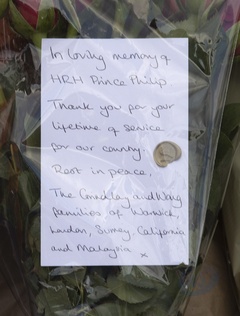 In loving memory of
HRH Prince Philip
Thank you for your
lifetime of service
for our country.
Rest in peace,
The and Wang
families of Warwick,
London, Surrey, California
and Malaysia x